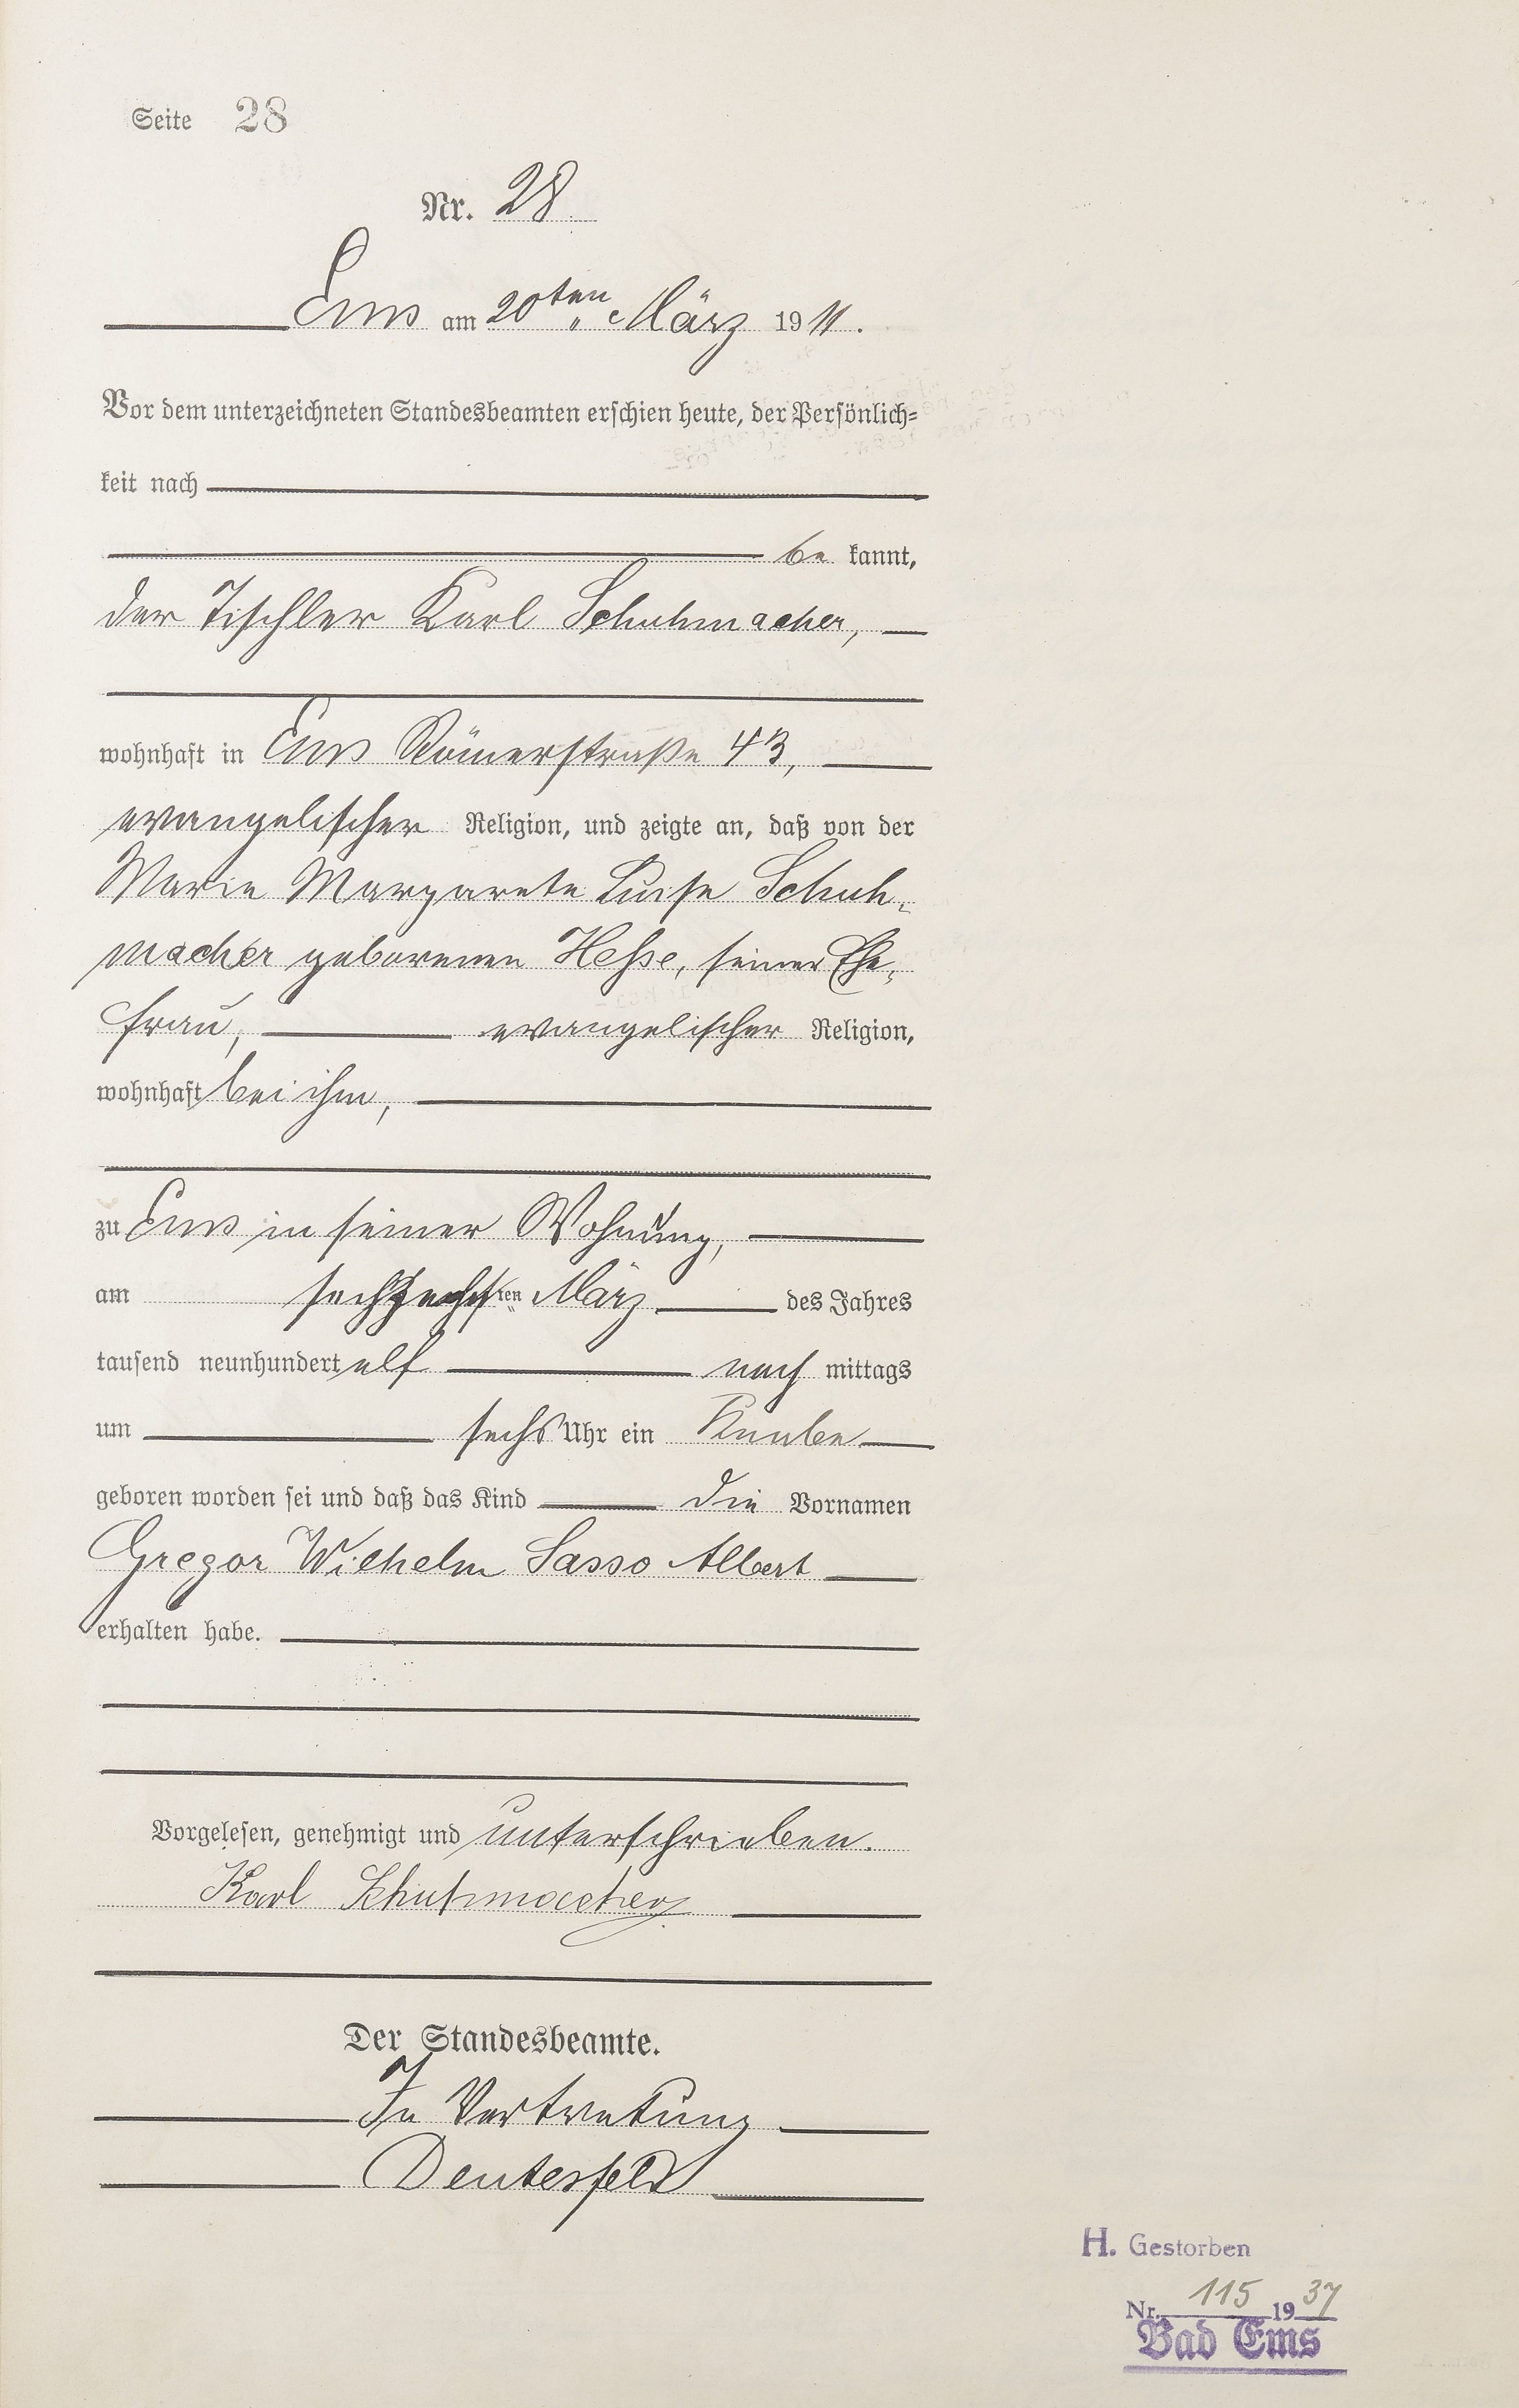 Seite 28
Nr. 28
Ems am 20ten März 1911.
Vor dem unterzeichneten Standesbeamten erschien heute, der Persönlich-
keit nach
be kannt,
der Tischler Karl Schuhmacher,
wohnhaft in Ems Römerstraße 43,
evangelischer Religion, und zeigte an, daß von der
Marie Margarete Luise Schuh-
macher geborenen Hesse, seiner Ehe-
frau, evangelischer Religion,
wohnhaft bei ihm,
zu Ems in seiner Wohnung,
am sechzehnten März des Jahres
tausend neunhundert elf nach mittags
um sechs Uhr ein Knabe
geboren worden sei und daß das Kind die Vornamen
Gregor Wilhelm Sasso Albert
erhalten habe.
Vorgelesen, genehmigt und unterschrieben.
Karl Schuhmacher
Der Standesbeamte.
In Vertretung
Deutesfeld
H. Gestorben
Nr. 115 1937
Bad Ems